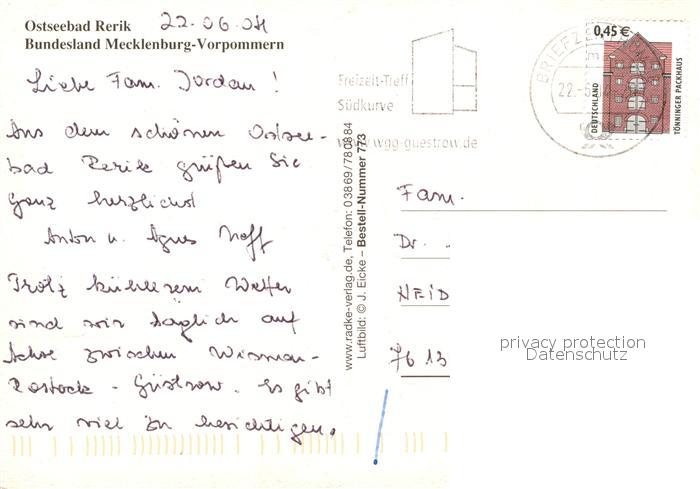 Ostseebad Rerik
Bundesland Mecklenburg-Vorpommern
22.06.04
Liebe Fam. Jordan!
Aus dem schönen Ostsee-
bad Rerik grüßen Sie
Ganz herzlichst
Anton u. Agnes Hoff
Trotz kühlerem Wetter
sind wir täglich auf
Achse zwischen Wismar-
Rostock - Güstrow. Es gibt
sehr viel zu besichtigen.
www.radke-verlag.de, Telefon: 03869/780884
Luftbild: © J. Eicke – Bestell-Nummer 773
Freizeit-Treff
Südkurve
www.wgg-guestrow.de
BRIEFZE
22.-6.
0,45 €
DEUTSCHLAND
TÖNNINGER PACKHAUS
Fam.
Dr.
HEID
7613
privacy protection
Datenschutz